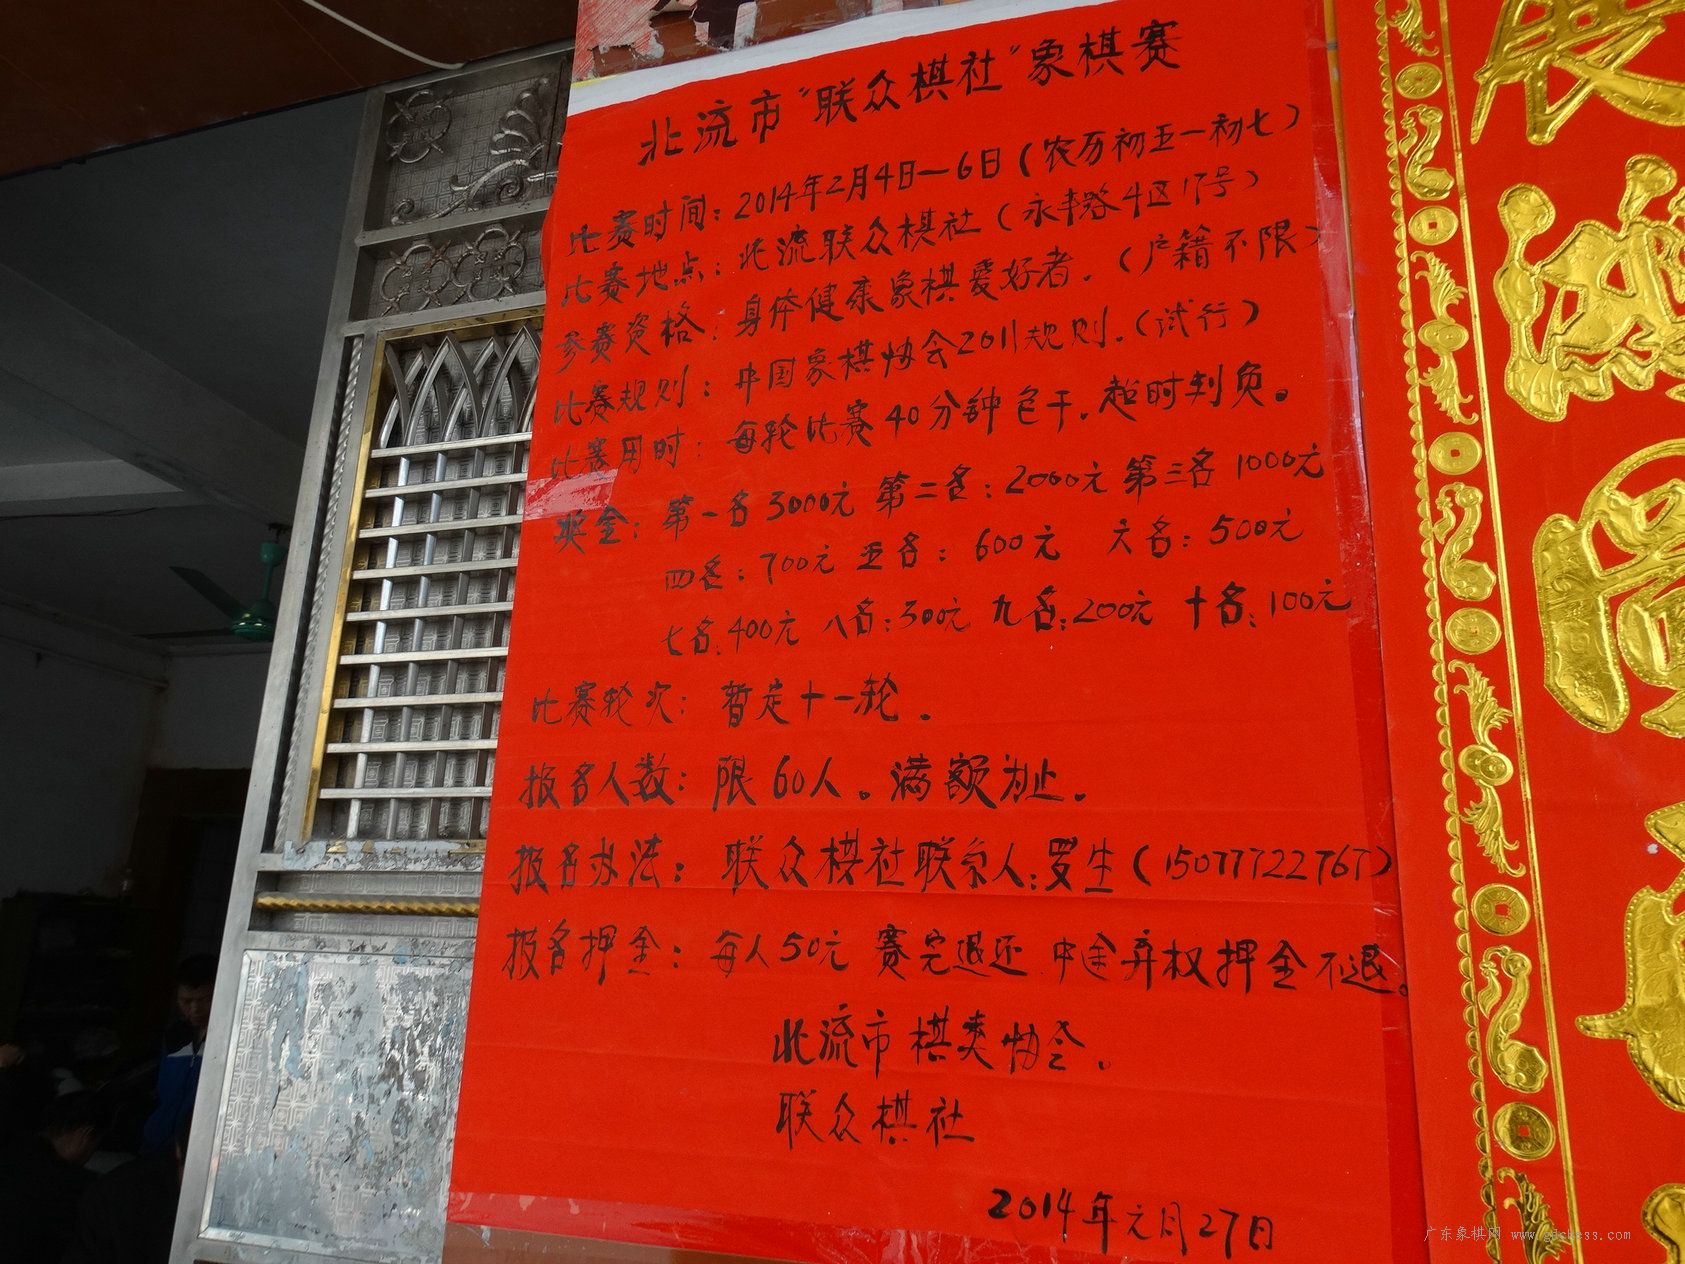 北流市“联众棋社”象棋赛
比赛时间：2014年2月4日—6日（农历初五—初七）
比赛地点：北流联众棋社（永丰路4区17号）
参赛资格：身体健康象棋爱好者．（户籍不限）
比赛规则：中国象棋协会2011规则．（试行）
比赛用时：每轮比赛40分钟包干．超时判负。
奖金：第一名3000元 第二名：2000元 第三名1000元
四名：700元 五名：600元 六名：500元
七名：400元 八名：300元 九名：200元 十名：100元
比赛轮次：暂定十一轮．
报名人数：限60人。满额为止．
报名办法：联众棋社联系人：罗生（15077722767）
报名押金：每人50元 赛完退还 中途弃权押金不退。
北流市棋类协会．
联众棋社
2014年元月27日
广东象棋网 www.gdchess.com